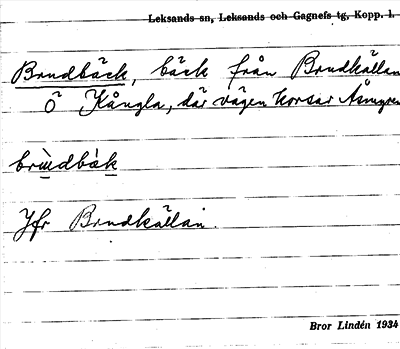 Leksands sn, Leksands och Gagnefs tg, Kopp. l.
Brudbäck, bäck från Brudkällan
Ö Kångla, där vägen korsar Åsmyren
brùdbàk
Jfr Brudkällan.
Bror Lindén 1934